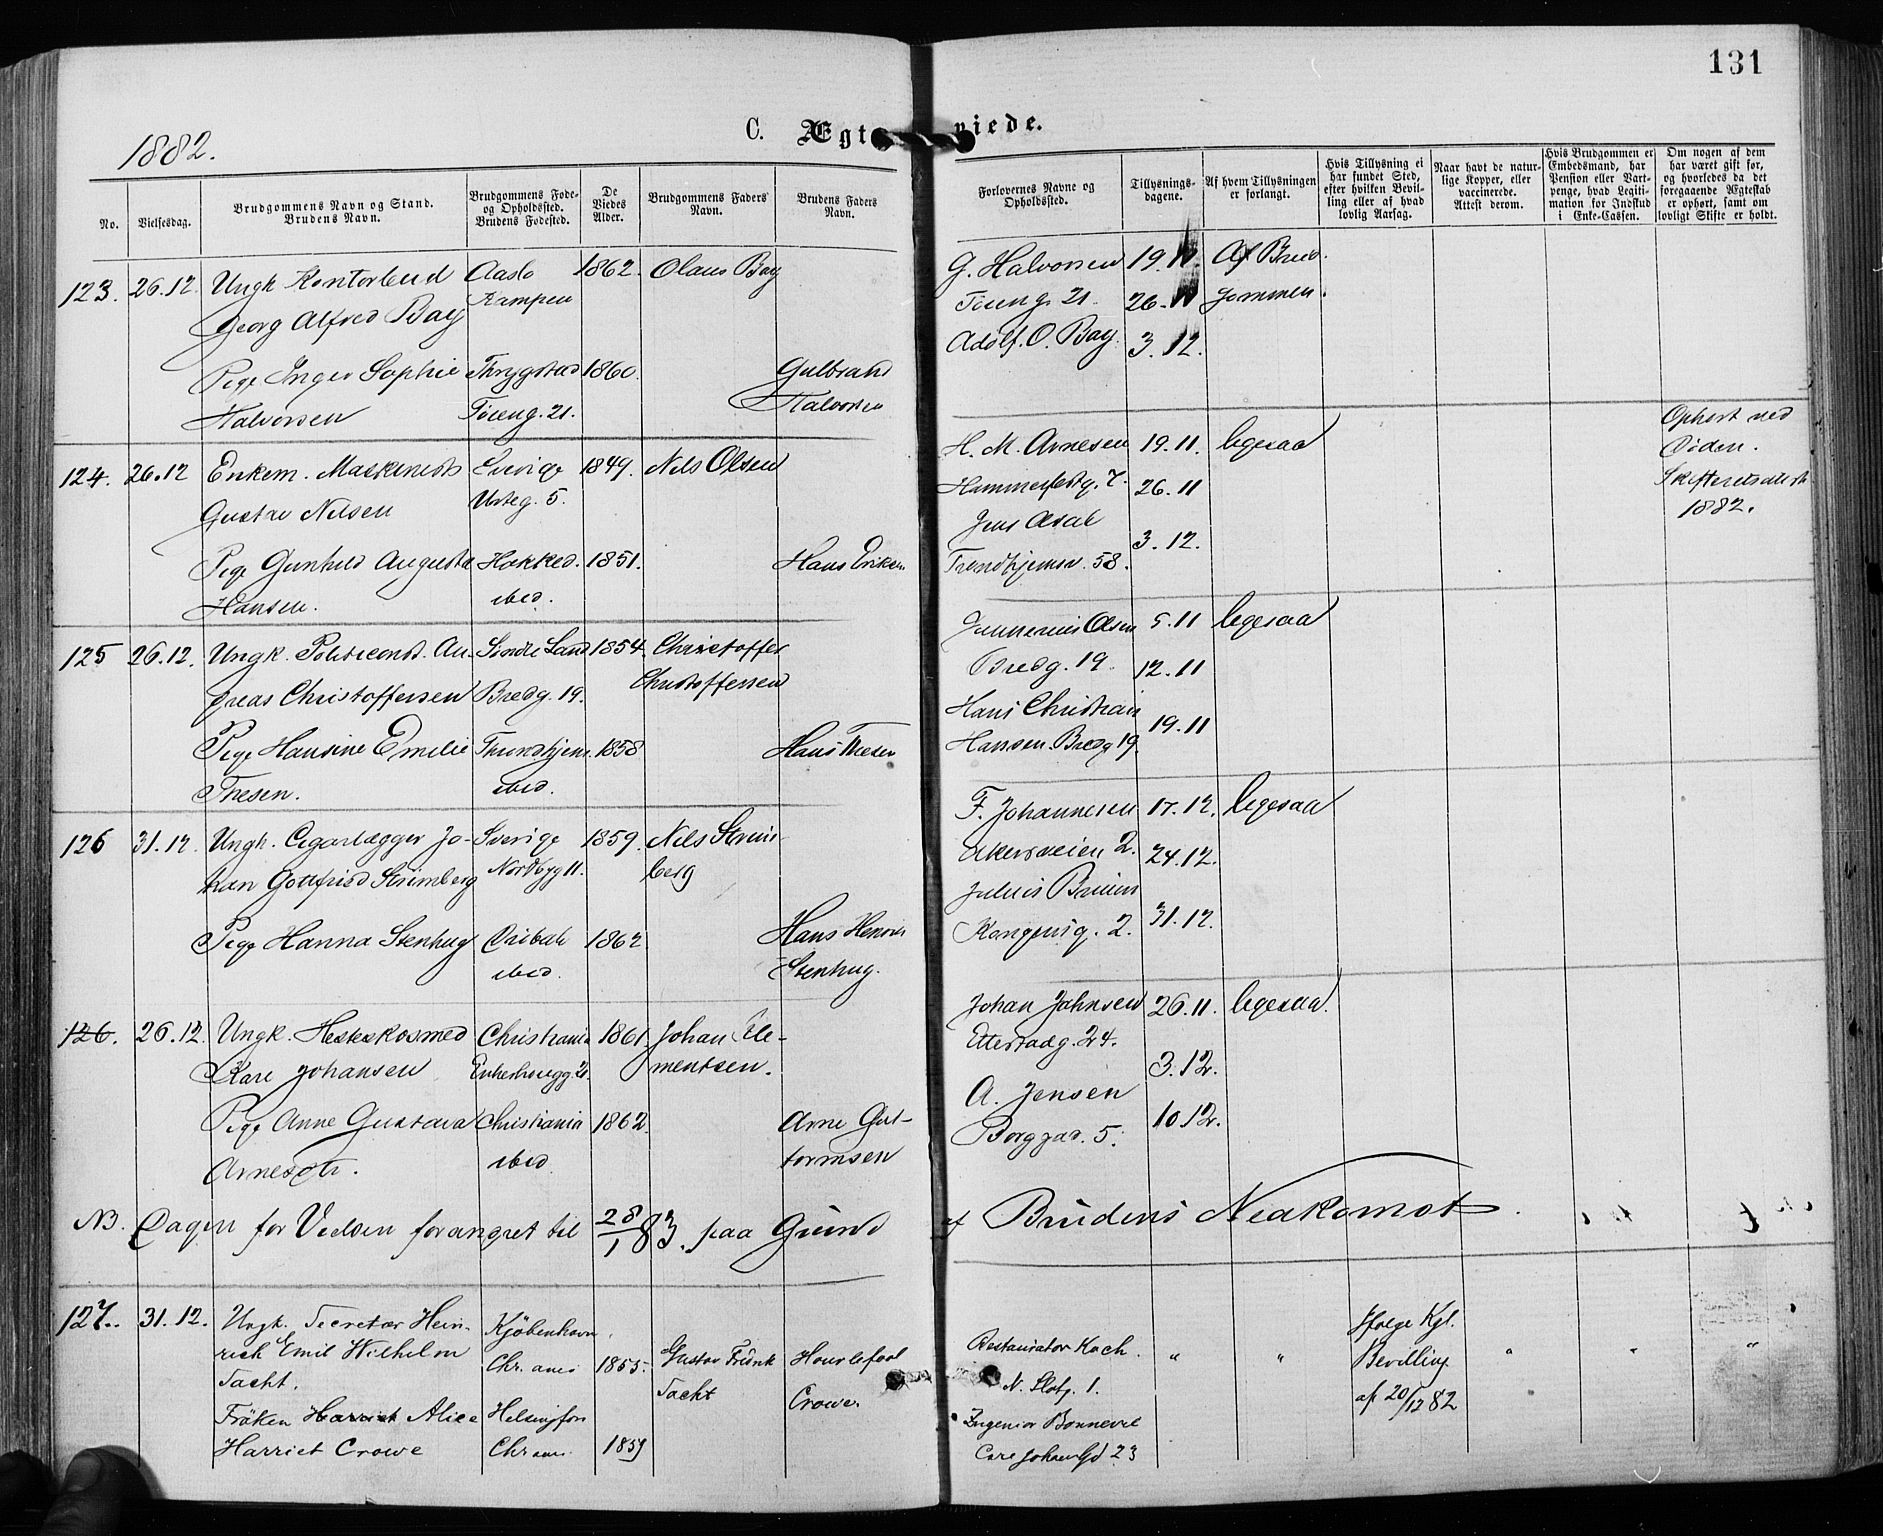 131
1882.
C. Ægt viede.
No.
Vielsesdag.
Brudgommens Navn og Stand.
Brudens Navn.
Brudgommens Føde-
og Opholdssted.
Brudens Fødested.
De
Viedes
Alder.
Brudgommens Faders
Navn.
Brudens Faders
Navn.
Forlovernes Navne og
Opholdssted.
Tillysnings-
dagene.
Af hvem Tillysningen
er forlangt.
Hvis Tillysning ei
har fundet Sted,
efter hvilken Bevil-
ling eller af hvad
lovlig Aarsag.
Naar havt de natur-
lige Kopper, eller
vaccinerede.
Attest derom.
Hvis Brudgommen er
Embedsmand, har
Pension eller Vart-
penge, hvad Legiti-
mation for Indskud
i Enke-Cassen.
Om nogen af dem
har været gift før,
og hvorledes da det
foregaaende Ægteskab
er ophørt, samt om
lovligt Skifte er holdt.
123. 26.12. Ungk. Kontorbud Aaslo 1862. Olaus Bay
Georg Alfred Bay Kampen
Pige Inger Sophie Thrygstad 1860. Gulbrand
Halvorsen Tøieng. 21. Halvorsen
G. Halvorsen 19.11. Af Brud-
Tøieng. 21. 26.11 gommen.
Adolf. O. Bay. 3.12.
124. 26.12 Enkem. Maskinist Sverige 1849. Nils Olsen
Gustav Nilsen Urteg. 5.
Pige Gunhild Augusta Hokked. 1851. Hans Eriksen
Hansen. ibid.
H. M. Arnesen 19.11. ligesaa
Hammerfestg. 7. 26.11
Jens
Trondhjemsv. 58. 3.12.
Ophørt ved
Døden.
Skifteretsattest
1882.
125 26.12. Ungk. Politiconst. An- Søndre Land 1854. Christoffer
dreas Christoffersen Bredg. 19. Christoffersen
Pige Hansine Emilie Throndhjem. 1858 Hans Thesen
Thesen. ibid.
Gunnerius Olsen 5.11 ligesaa
Bredg. 19. 12.11
Hans Christian
Hansen. Bredg 19. 19.11
126 31.12. Ungk. Cigarlægger Jo- Sverige 1859. Nils Strøm-
han Gottfried Strömberg Nordbyg 11. berg
Pige Hanna Stenhug 1862 Hans Henrik
ibid. Stenhug.
F. Johannesen 17.12. ligesaa
Akersveien 2. 24.12.
Julius Bruun
Kongensg. 2. 31.12.
126. 26.12. Ungk. Hesteskosmed Christiania 1861. Johan Cle-
Karl Johansen Enkerhaugg. 2. mentsen.
Pige Anne Gustava Christiania 1862. Arne Gut-
Arnesdtr. ibid. tormsen
Johan Johnsen 26.11. ligesaa.
Etterstadg. 24.
3.12.
A. Jensen
Borggad. 5. 10.12.
NB. Dagen for Vielsen forandret til 28/1 83. paa Grund af Brudens Nedkomst.
127. 31.12. Ungk. Secretær Hein- Kjöbenhavn.
rich Emil Wilhelm Chr.ania 1855. Gustav Frank Houslefaal
Tacht. Tacht Crowe.
Fröken Harriet Alice Helsingfors
Harriet Crowe Chr.ania 1859
Restauratør Koch. " " Ifølge Kgl. " " "
N. Slotg. 1. Bevilling
Ingeniør Bonnevie af 20/12 82
Carl Johans Gd 23